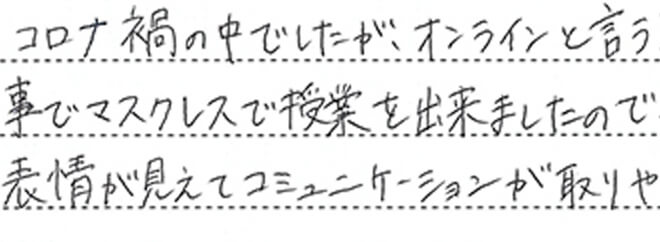 コロナ禍の中でしたが、オンラインと言う
事でマスクレスで授業を出来ましたので
表情が見えてコミュニケーションが取りや